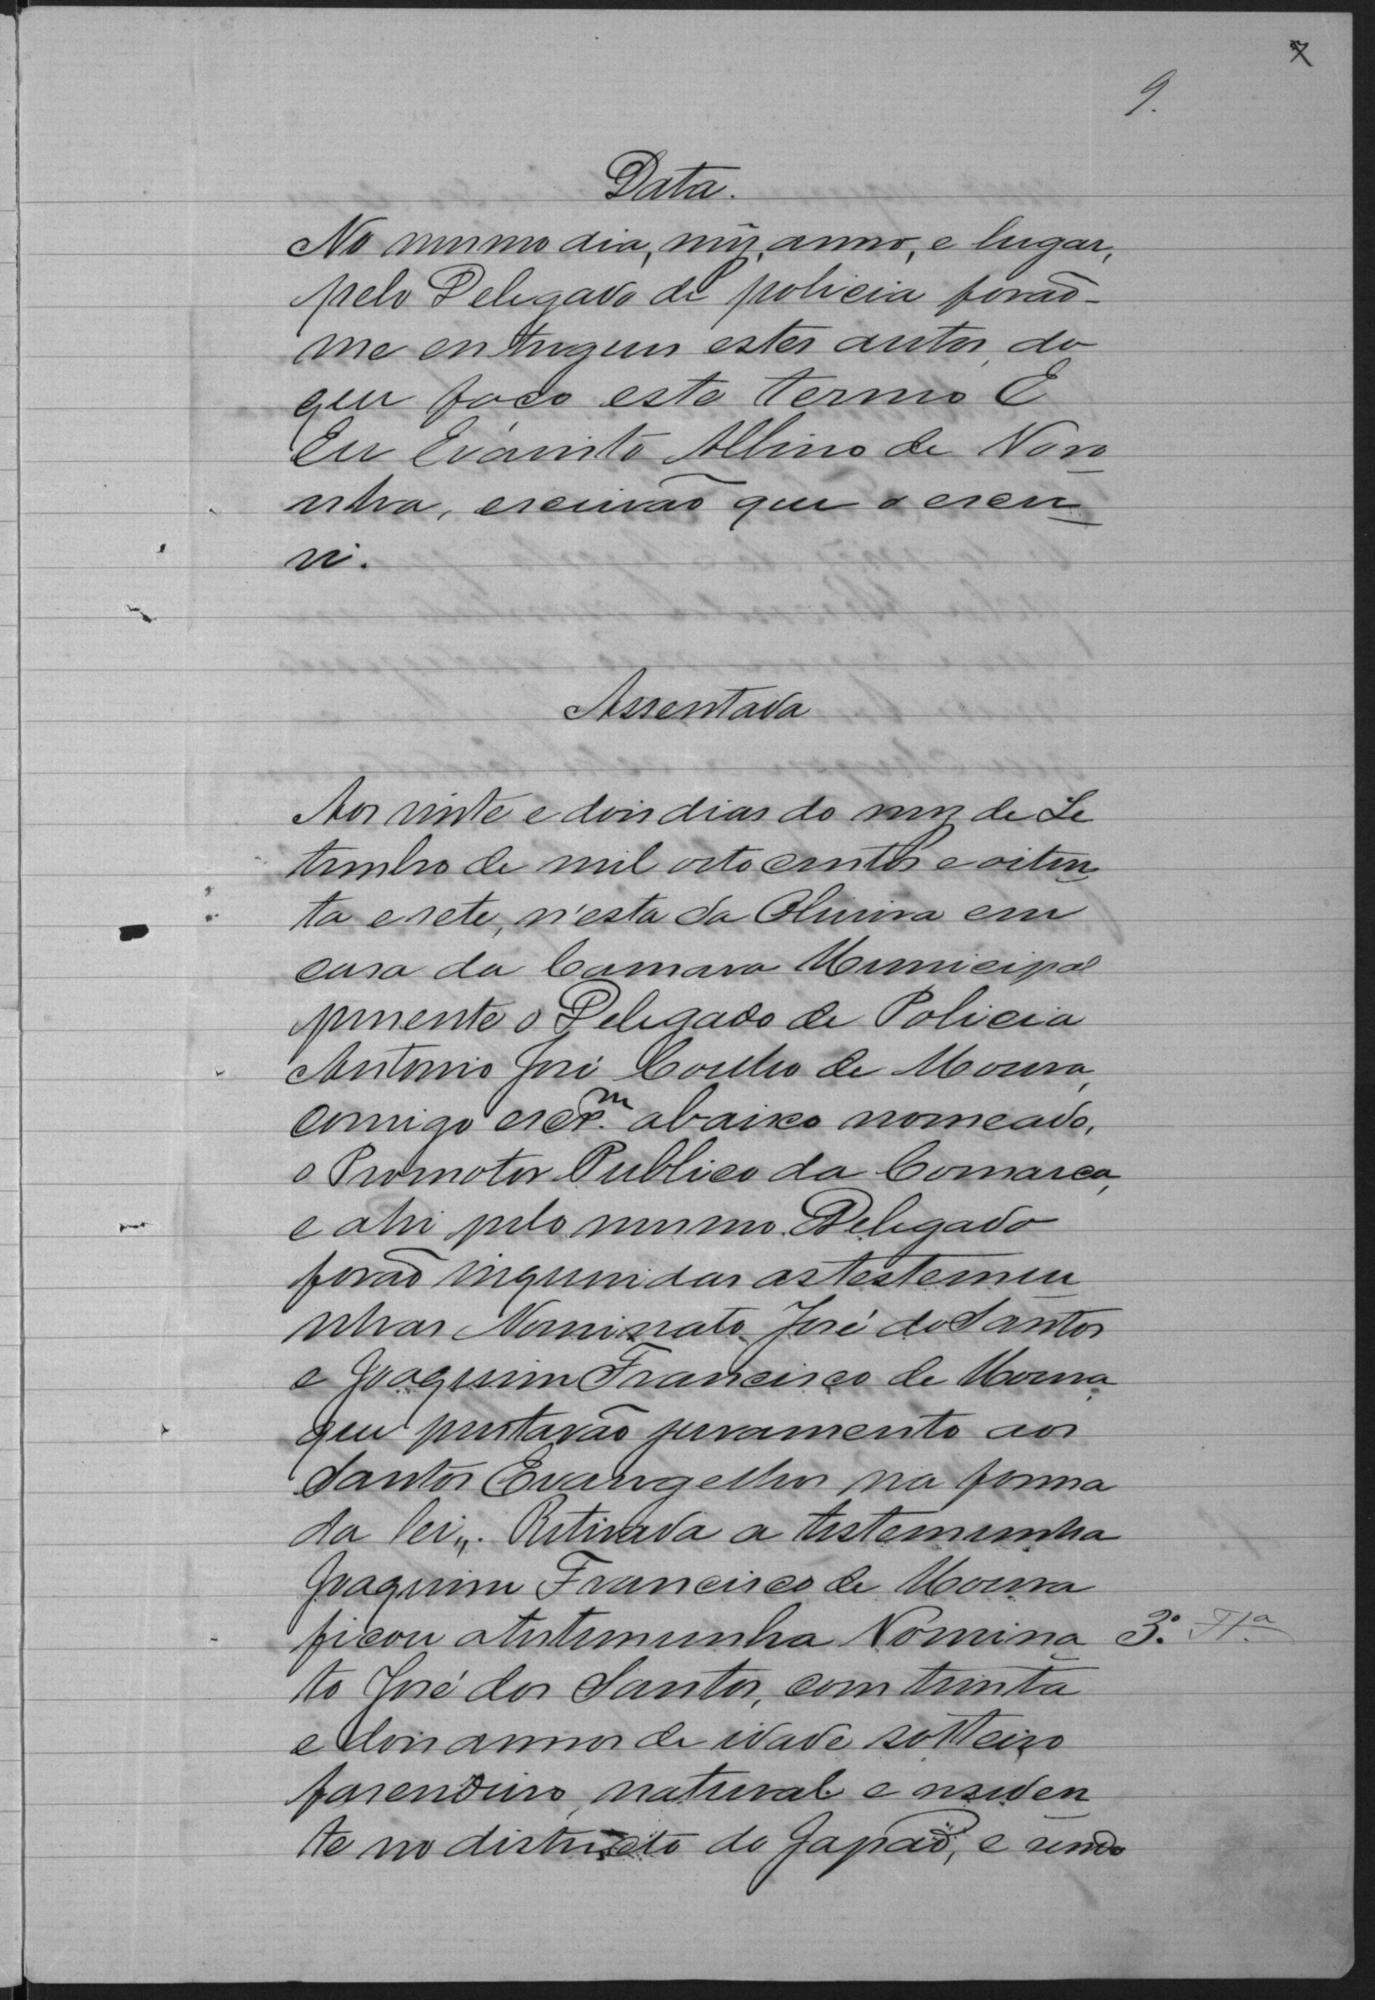 7
9.
Data.
No mesmo dia, mez, anno, e lugar,
pelo Delegado de policia forão-
me entregues estes autos, do
que faço este termo E
Eu Evaristo Albino de Noro
nha, escrivão que o escre
vi.
Assentada
Aos vinte e dois dias do mez de Se
tembro de mil oitocentos e oiten
ta e sete, n'esta da Oliveira em
casa da Camara Municipal
presente o Delegado de Policia
Antonio José Coelho de Moura,
comigo escr.m abaixo nomeado,
o Promotor Publico da Comarca,
e ahi pelo mesmo Delegado
forão inqueridas as testemu
nhas Nominato José do Santos
e Joaquim Francisco de Moura
que prestarão juramento aos
Santos Evangelhos na forma
da lei,,. Retirada a testemunha
Joaquim Francisco de Moura
ficou a testemunha Nomina 3.º Tt.a
to José dos Santos, com trinta
e dois annos de idade solteiro
fasendeiro, natural e residen
te no districto do Japão, e sendo